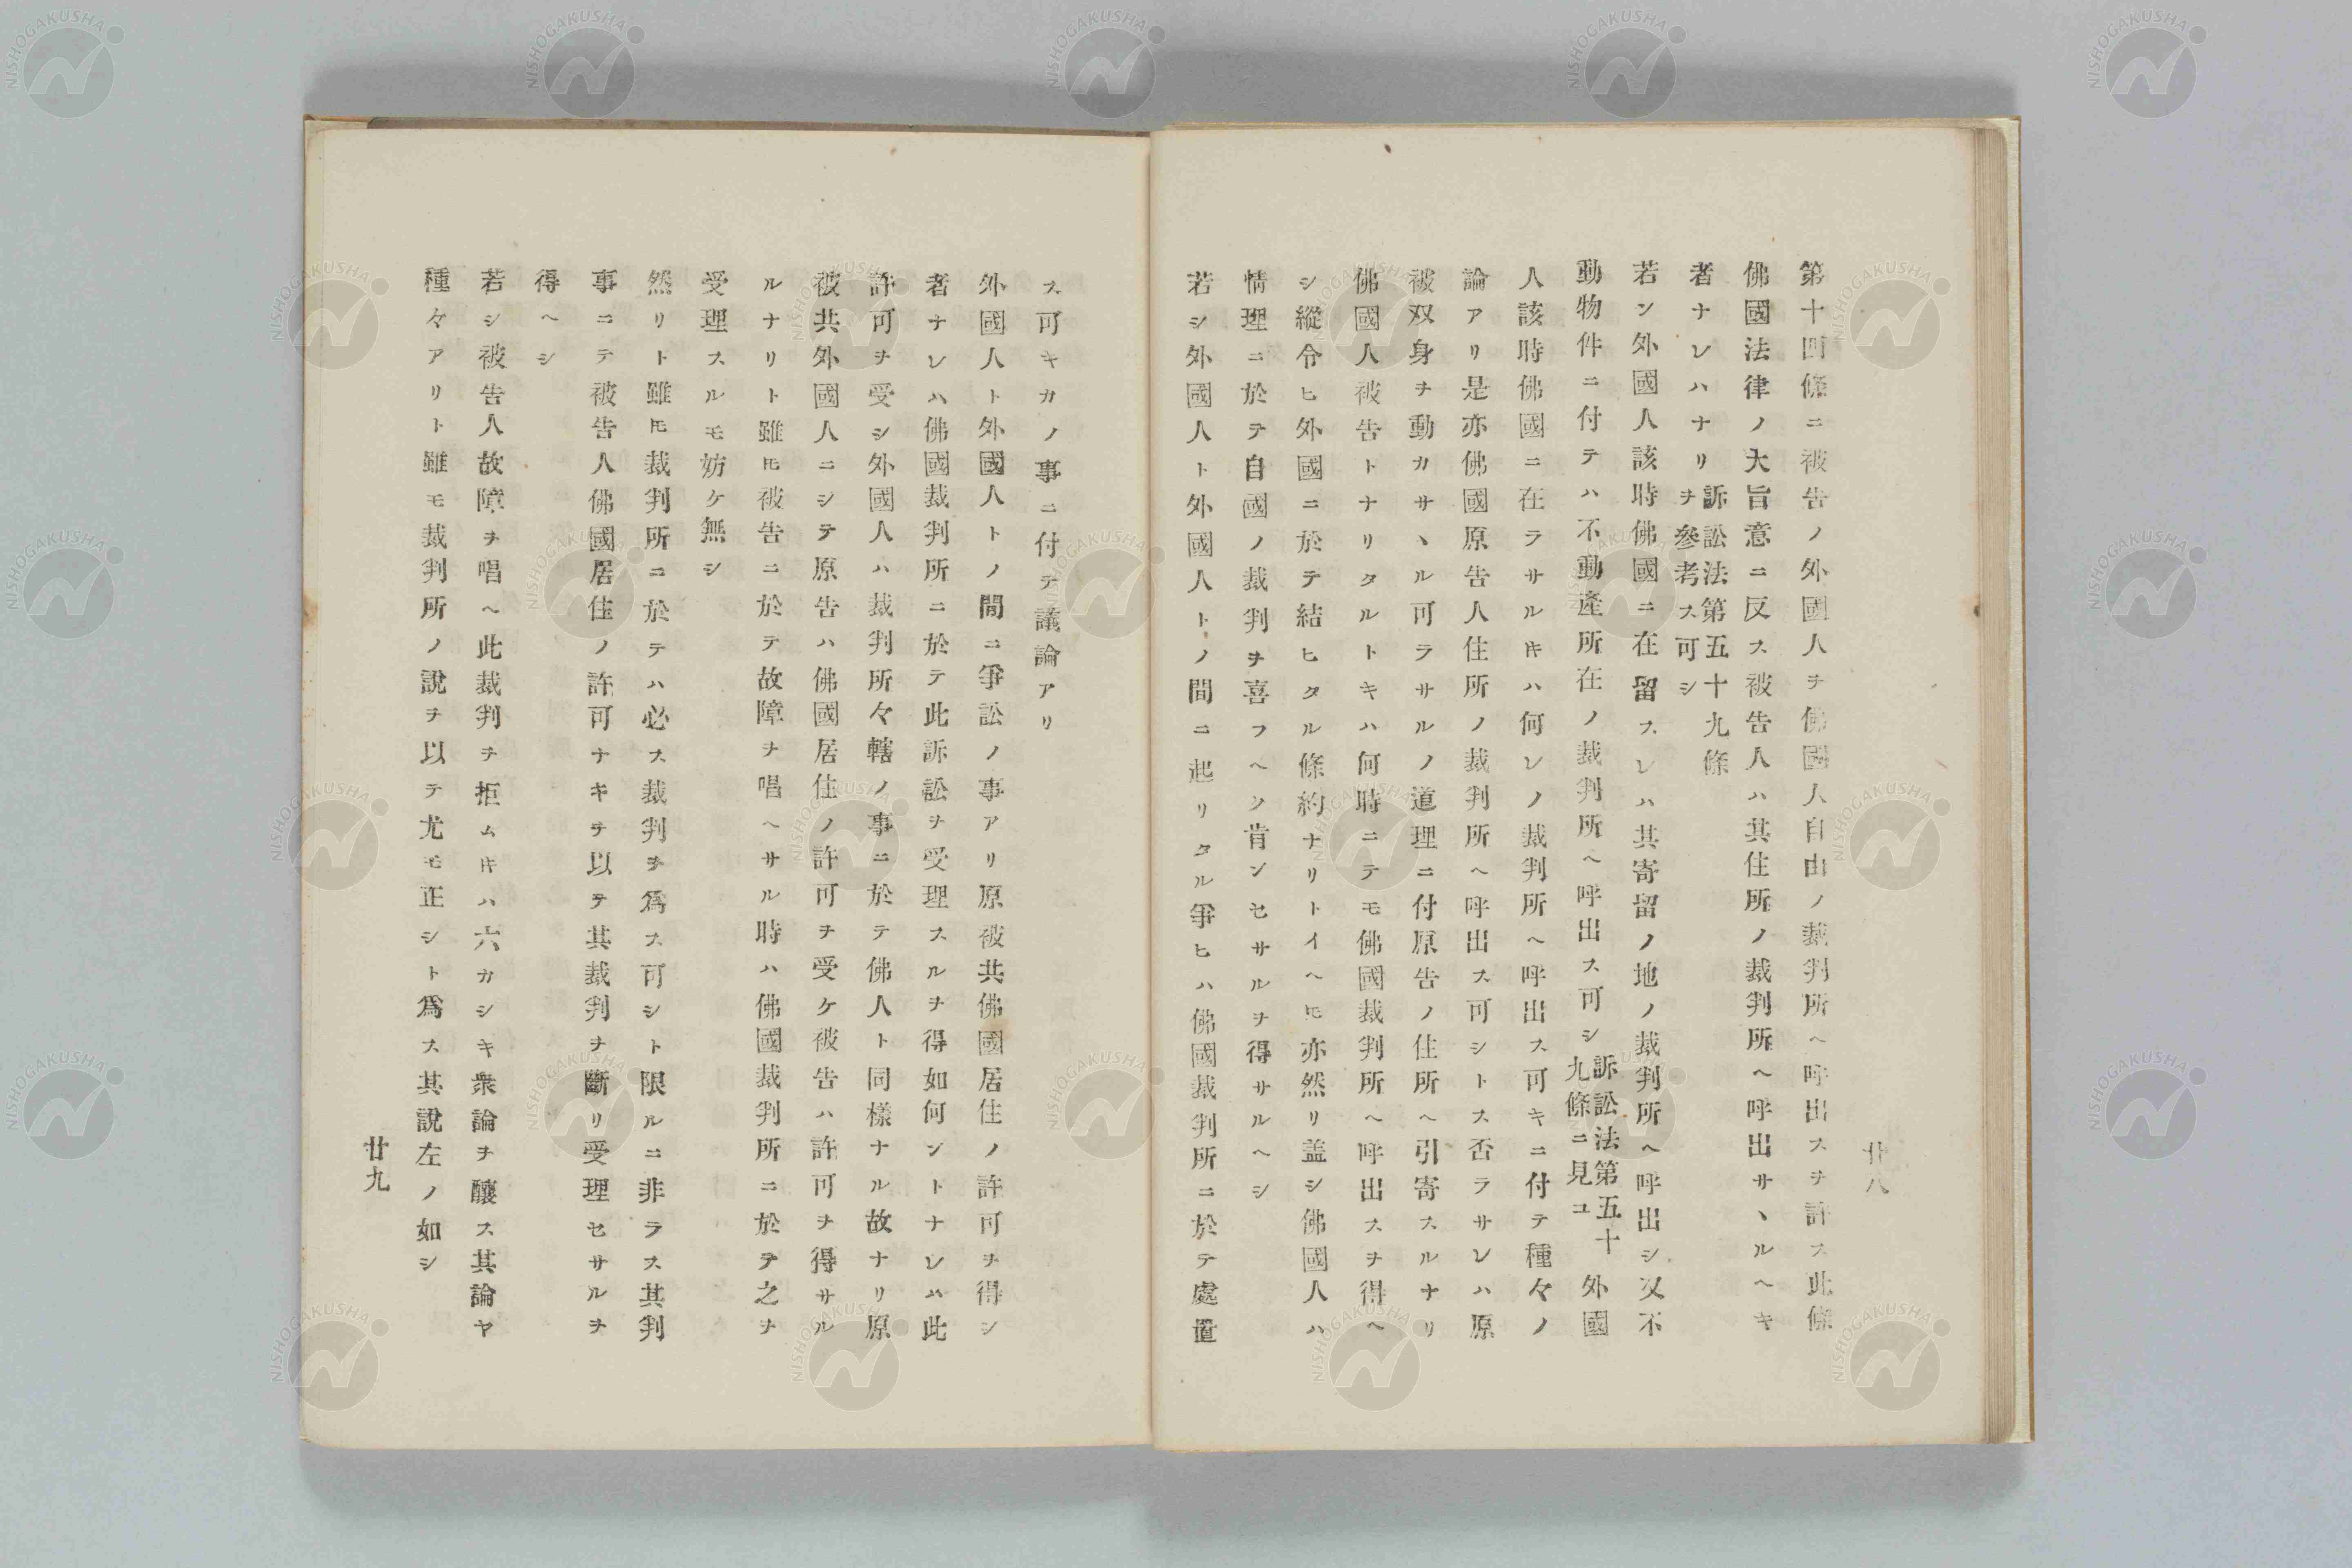 廿八
第十四條ニ被告ノ外國人ヲ佛國人自由ノ裁判所ヘ呼出スヲ許ス此條
佛國法律ノ大旨意ニ反ス被告人ハ其住所ノ裁判所ヘ呼出サヽルヘキ
者ナレハナリ訴訟法第五十九條
ヲ參考ス可シ
若シ外國人該時佛國ニ在留スレハ其寄留ノ地ノ裁判所ヘ呼出シ又不
動物件ニ付テハ不動產所在ノ裁判所ヘ呼出ス可シ訴訟法第五十
九條ニ見ユ外國
人該時佛國ニ在ラサルキハ何レノ裁判所ヘ呼出ス可キニ付テ種々ノ
論アリ是亦佛國原告人住所ノ裁判所ヘ呼出ス可シトス否ラサレハ原
被双身ヲ動カサヽル可ラサルノ道理ニ付原告ノ住所ヘ引寄スルナリ
佛國人被告トナリタルトキハ何時ニテモ佛國裁判所ヘ呼出スヲ得ヘ
シ縱令ヒ外國ニ於テ結ヒタル條約ナリトイヘㇳモ亦然リ盖シ佛國人ハ
情理ニ於テ自國ノ裁判ヲ喜フヘク肯ンセサルヲ得サルヘシ
若シ外國人ト外國人トノ間ニ起リタル爭ヒハ佛國裁判所ニ於テ處置
ス可キカノ事ニ付テ議論アリ
外國人ト外國人トノ間ニ爭訟ノ事アリ原被共佛國居住ノ許可ヲ得シ
者ナレハ佛國裁判所ニ於テ此訴訟ヲ受理スルヲ得如何ントナレハ此
許可ヲ受シ外國人ハ裁判所々轄ノ事ニ於テ佛人ト同樣ナル故ナリ原
被共外國人ニシテ原告ハ佛國居住ノ許可ヲ受ケ被告ハ許可ヲ得サル
ルナリト雖ㇳモ被告ニ於テ故障ヲ唱ヘサル時ハ佛國裁判所ニ於テ之ヲ
受理スルモ妨ケ無シ
然リト雖ㇳモ裁判所ニ於テハ必ス裁判ヲ爲ス可シト限ルニ非ラス其判
事ニテ被告人佛國居住ノ許可ナキヲ以テ其裁判ヲ斷リ受理セサルヲ
得ヘシ
若シ被告人故障ヲ唱ヘ此裁判ヲ拒ムㇳキハ六カシキ衆論ヲ釀ス其論ヤ
種々アリト雖モ裁判所ノ說ヲ以テ尤モ正シト爲ス其說左ノ如シ
廿九
NISHOGAKUSHA